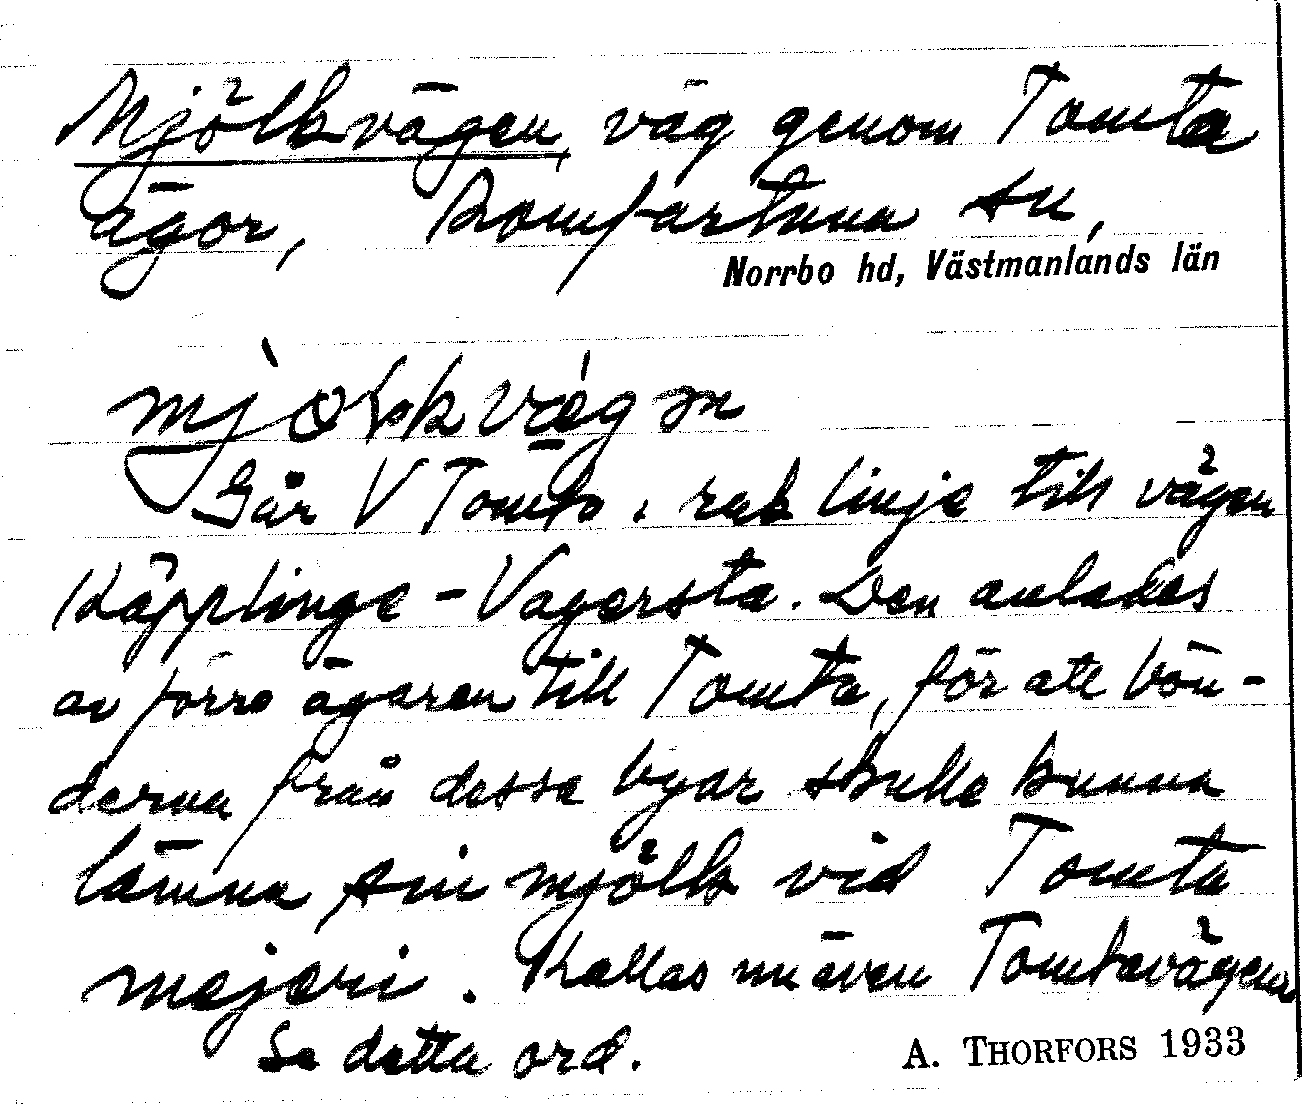 Mjölkvägen, väg genom Tomta
ägor, Romfartuna sn,
Norrbo hd, Västmanlands län
Går V Tomta i rak linje till vägen
Käpplinge - Vagersta. Den anlades
av förre ägaren till Tomta, för att bön-
derna från dessa byar skulle kunna
lämna sin mjölk vid Tomta
mejeri. Kallas nu även Tomtavägen
Se detta ord.
A. THORFORS 1933